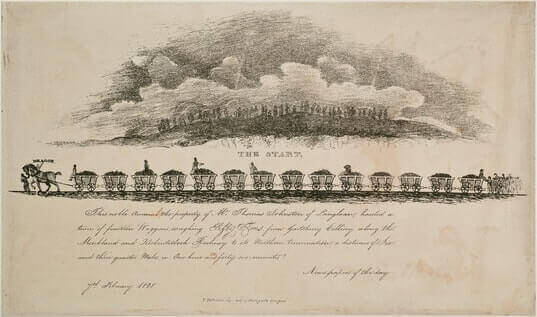 DRAGON
THE START.
This noble Animal the property of Mr. Thomas Johnston of Langloan, hauled a
train of fourteen Waggons weighing Fifty Tons from Gartsherry Colliery along the
Monkland and Kirkintilloch Railway to its Northern termination a distance of Six
and three quarter Miles in One hour and forty one minutes!
Newspapers of the day
7th February 1831